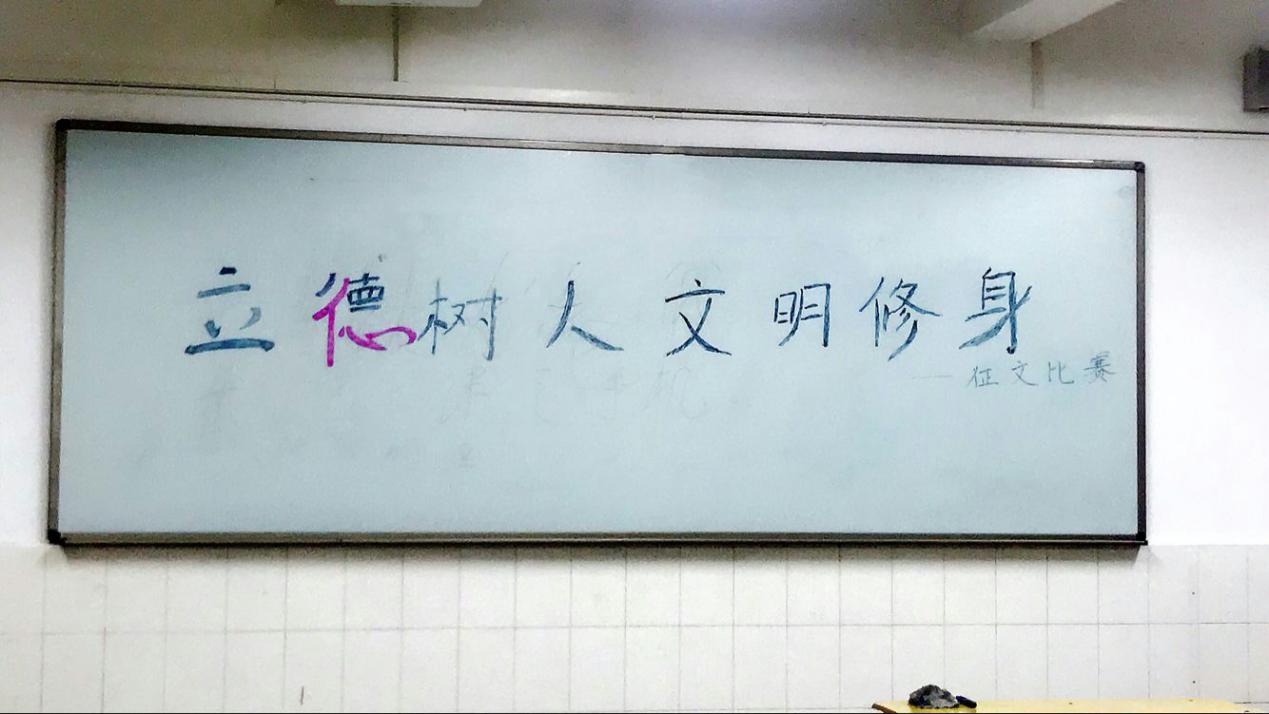 立德树人文明修身
——征文比赛